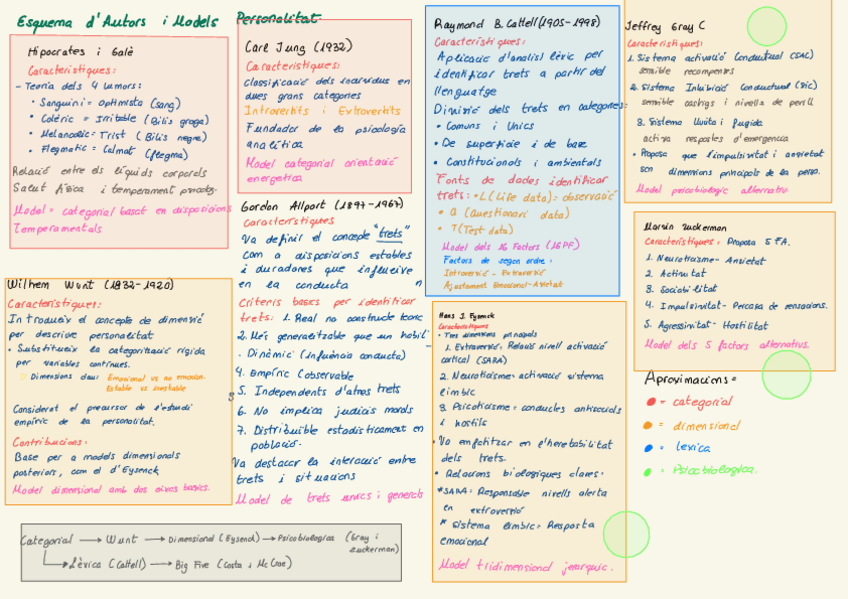 Esquema d'Autors i Models Personalitat
Hipocrates i Galè
Característiques:
- Teoria dels 4 humors:
• Sanguini = optimista (sang)
• Colèric = Irritable (Bilis groga)
• Melancolic = Trist (Bilis negra)
• Flegmatic = Calmat (flegma)
Relació entre els líquids corporals
Salut física i temperament
Model = categorial basat en disposicions
Temperamentals
Wilhem Wunt (1832-1920)
Característiques:
Introdueix el concepte de dimensió
per descriure personalitat.
• Substitueix la categorització rígida
per variables contínues.
Dimensions clau: Emocional vs no emocion.
Estable vs inestable
Considerat el precursor de l'estudi
empíric de la personalitat.
Contribucions:
Base per a models dimensionals
posteriors, com el d'Eysenck
Model dimensional amb dos eixos basics.
Carl Jung (1932)
Característiques:
Classificació dels individus en
dues grans categories
Introvertits i Extrovertits
Fundador de la psicologia
analítica
Model categorial orientació
energetica
Gordon Allport (1897-1967)
Característiques
Va definir el concepte "trets"
com a disposicions estables
i duradores que influeixen
en la conducta
Criteris basics per identificar
trets: 1. Real no constructe teoric
2. Més generalitzable que un hàbit
• Dinàmic (influència conducta)
4. Empíric Observable
5. Independents d'altres trets
6. No implica judicis morals
7. Distribuible estadísticament en
població.
Va destacar la interacció entre
trets i situacions
Model de trets unics i generals
Raymond B. Cattell (1905-1998)
Característiques:
Aplicació d'anàlisi lèxic per
identificar trets a partir del
llenguatge
Divisió dels trets en categories:
• Comuns i Unics
• De superfície i de base
• Constitucionals i ambientals
Fonts de dades identificar
trets: • L (Life data): observació
• Q (Questionari data)
• T (Test data)
Model dels 16 Factors (16PF)
Factors de segon ordre:
Introversió - Extraversió
Ajustament Emocional-Ansietat
Hans J. Eysenck
Característiques
• Tres dimensions principals
1. Extraversió: Relació nivell activació
cortical (SARA)
2. Neuroticisme: activació sistema
límbic
3. Psicoticisme: conductes antisocials
i hostils
• Va emfatitzar en l'heretabilitat
dels trets.
• Relacions biologiques clares:
* SARA: Responsable nivells alerta
en extroversió
* Sistema límbic: Resposta
emocional
Model tridimensional jerarquic.
Jeffrey Gray C
Característiques:
1. Sistema activació Conductual (SAC)
sensible recompenses
2. Sistema Inhibició Conductual (SIC)
sensible castigs i nivells de perill
3. Sistema lluita i fugida
activa respostes d'emergencia
• Proposa que l'impulsivitat i ansietat
son dimensions principals de la perso.
Model psicobiologic alternatiu.
Marvin Zuckerman
Característiques: Proposa 5 FA.
1. Neuroticisme - Ansietat
2. Activitat
3. Sociabilitat
4. Impulsivitat - Percasa de sensacions.
5. Agressivitat - Hostilitat
Model dels 5 factors alternatius.
Aproximacions =
= categorial
= dimensional
= lexica
= Psicobiologica.
Categorial → Wunt → Dimensional (Eysenck) → Psicobiologica (Gray i
Zuckerman)
Lèxica (Cattell) → Big Five (Costa i McCrae)